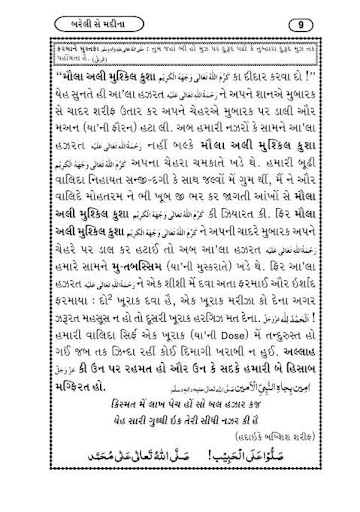 બરેલી સે મદીના
9
ફરમાને મુસ્તફા صلى الله تعالى عليه واله وسلم : તુમ જહાં ભી હો મુઝ પર દુરૂદ પઢો કે તુમ્હારા દુરૂદ મુઝ તક
પહોંચતા હૈ.
“મૌલા અલી મુશ્કિલ કુશા كَرَّمَ اللّٰهُ تَعَالٰى وَجْهَهُ الْكَرِيْم કા દીદાર કરવા દો !”
યેહ સુનતે હી આ'લા હઝરત رَحْمَةُ اللّٰهِ تَعَالٰى عَلَيْه ને અપને શાનએ મુબારક
સે ચાદર શરીફ ઉતાર કર અપને ચેહરએ મુબારક પર ડાલી ઔર
મઅન (યા'ની ફૌરન) હટા લી. અબ હમારી નઝરોં કે સામને આ'લા
હઝરત رَحْمَةُ اللّٰهِ تَعَالٰى عَلَيْه નહીં બલ્કે મૌલા અલી મુશ્કિલ કુશા
كَرَّمَ اللّٰهُ تَعَالٰى وَجْهَهُ الْكَرِيْم અપના ચેહરા ચમકાતે ખડે થે. હમારી બૂઢી
વાલિદા નિહાયત સન્જી-દગી કે સાથ જલ્વોં મેં ગુમ થીં, મૈં ને ઔર
વાલિદે મોહતરમ ને ભી ખૂબ જી ભર કર જાગતી આંખોં સે મૌલા
અલી મુશ્કિલ કુશા كَرَّمَ اللّٰهُ تَعَالٰى وَجْهَهُ الْكَرِيْم કી ઝિયારત કી. ફિર મૌલા
અલી મુશ્કિલ કુશા كَرَّمَ اللّٰهُ تَعَالٰى وَجْهَهُ الْكَرِيْم ને અપની ચાદરે મુબારક અપને
ચેહરે પર ડાલ કર હટાઈ તો અબ આ'લા હઝરત رَحْمَةُ اللّٰهِ تَعَالٰى عَلَيْه
હમારે સામને મુ-તબસ્સિમ (યા'ની મુસ્કરાતે) ખડે થે. ફિર આ'લા
હઝરત رَحْمَةُ اللّٰهِ تَعَالٰى عَلَيْه ને એક શીશી મેં દવા અતા ફરમાઈ ઔર ઇર્શાદ
ફરમાયા : દો² ખૂરાક દવા હૈ, એક ખૂરાક મરીઝા કો દેના અગર
ઝરૂરત મહસૂસ ન હો તો દૂસરી ખૂરાક હરગિઝ મત દેના. اَلْحَمْدُ لِلّٰه عَزَّوَجَلَّ !
હમારી વાલિદા સિર્ફ એક ખૂરાક (યા'ની Dose) મેં તન્દુરુસ્ત હો
ગઈં જબ તક ઝિન્દા રહીં કોઈ દિમાગી ખરાબી ન હુઈ. અલ્લાહ
عَزَّوَجَلَّ કી ઉન પર રહમત હો ઔર ઉન કે સદકે હમારી બે હિસાબ
મગ્ફિરત હો. اٰمِين بِجَاهِ النَّبِيِّ الْاَمين صلى الله تعالى عليه واله وسلم
કિસ્મત મેં લાખ પેચ હોં સો બલ હઝાર કજ
યેહ સારી ગુથ્થી ઇક તેરી સીધી નઝર કી હૈ
(હદાઇકે બખ્શિશ શરીફ)
صَلُّوْا عَلَى الْحَبِيْب! صَلَّى اللّٰهُ تَعَالٰى عَلٰى مُحَمَّد